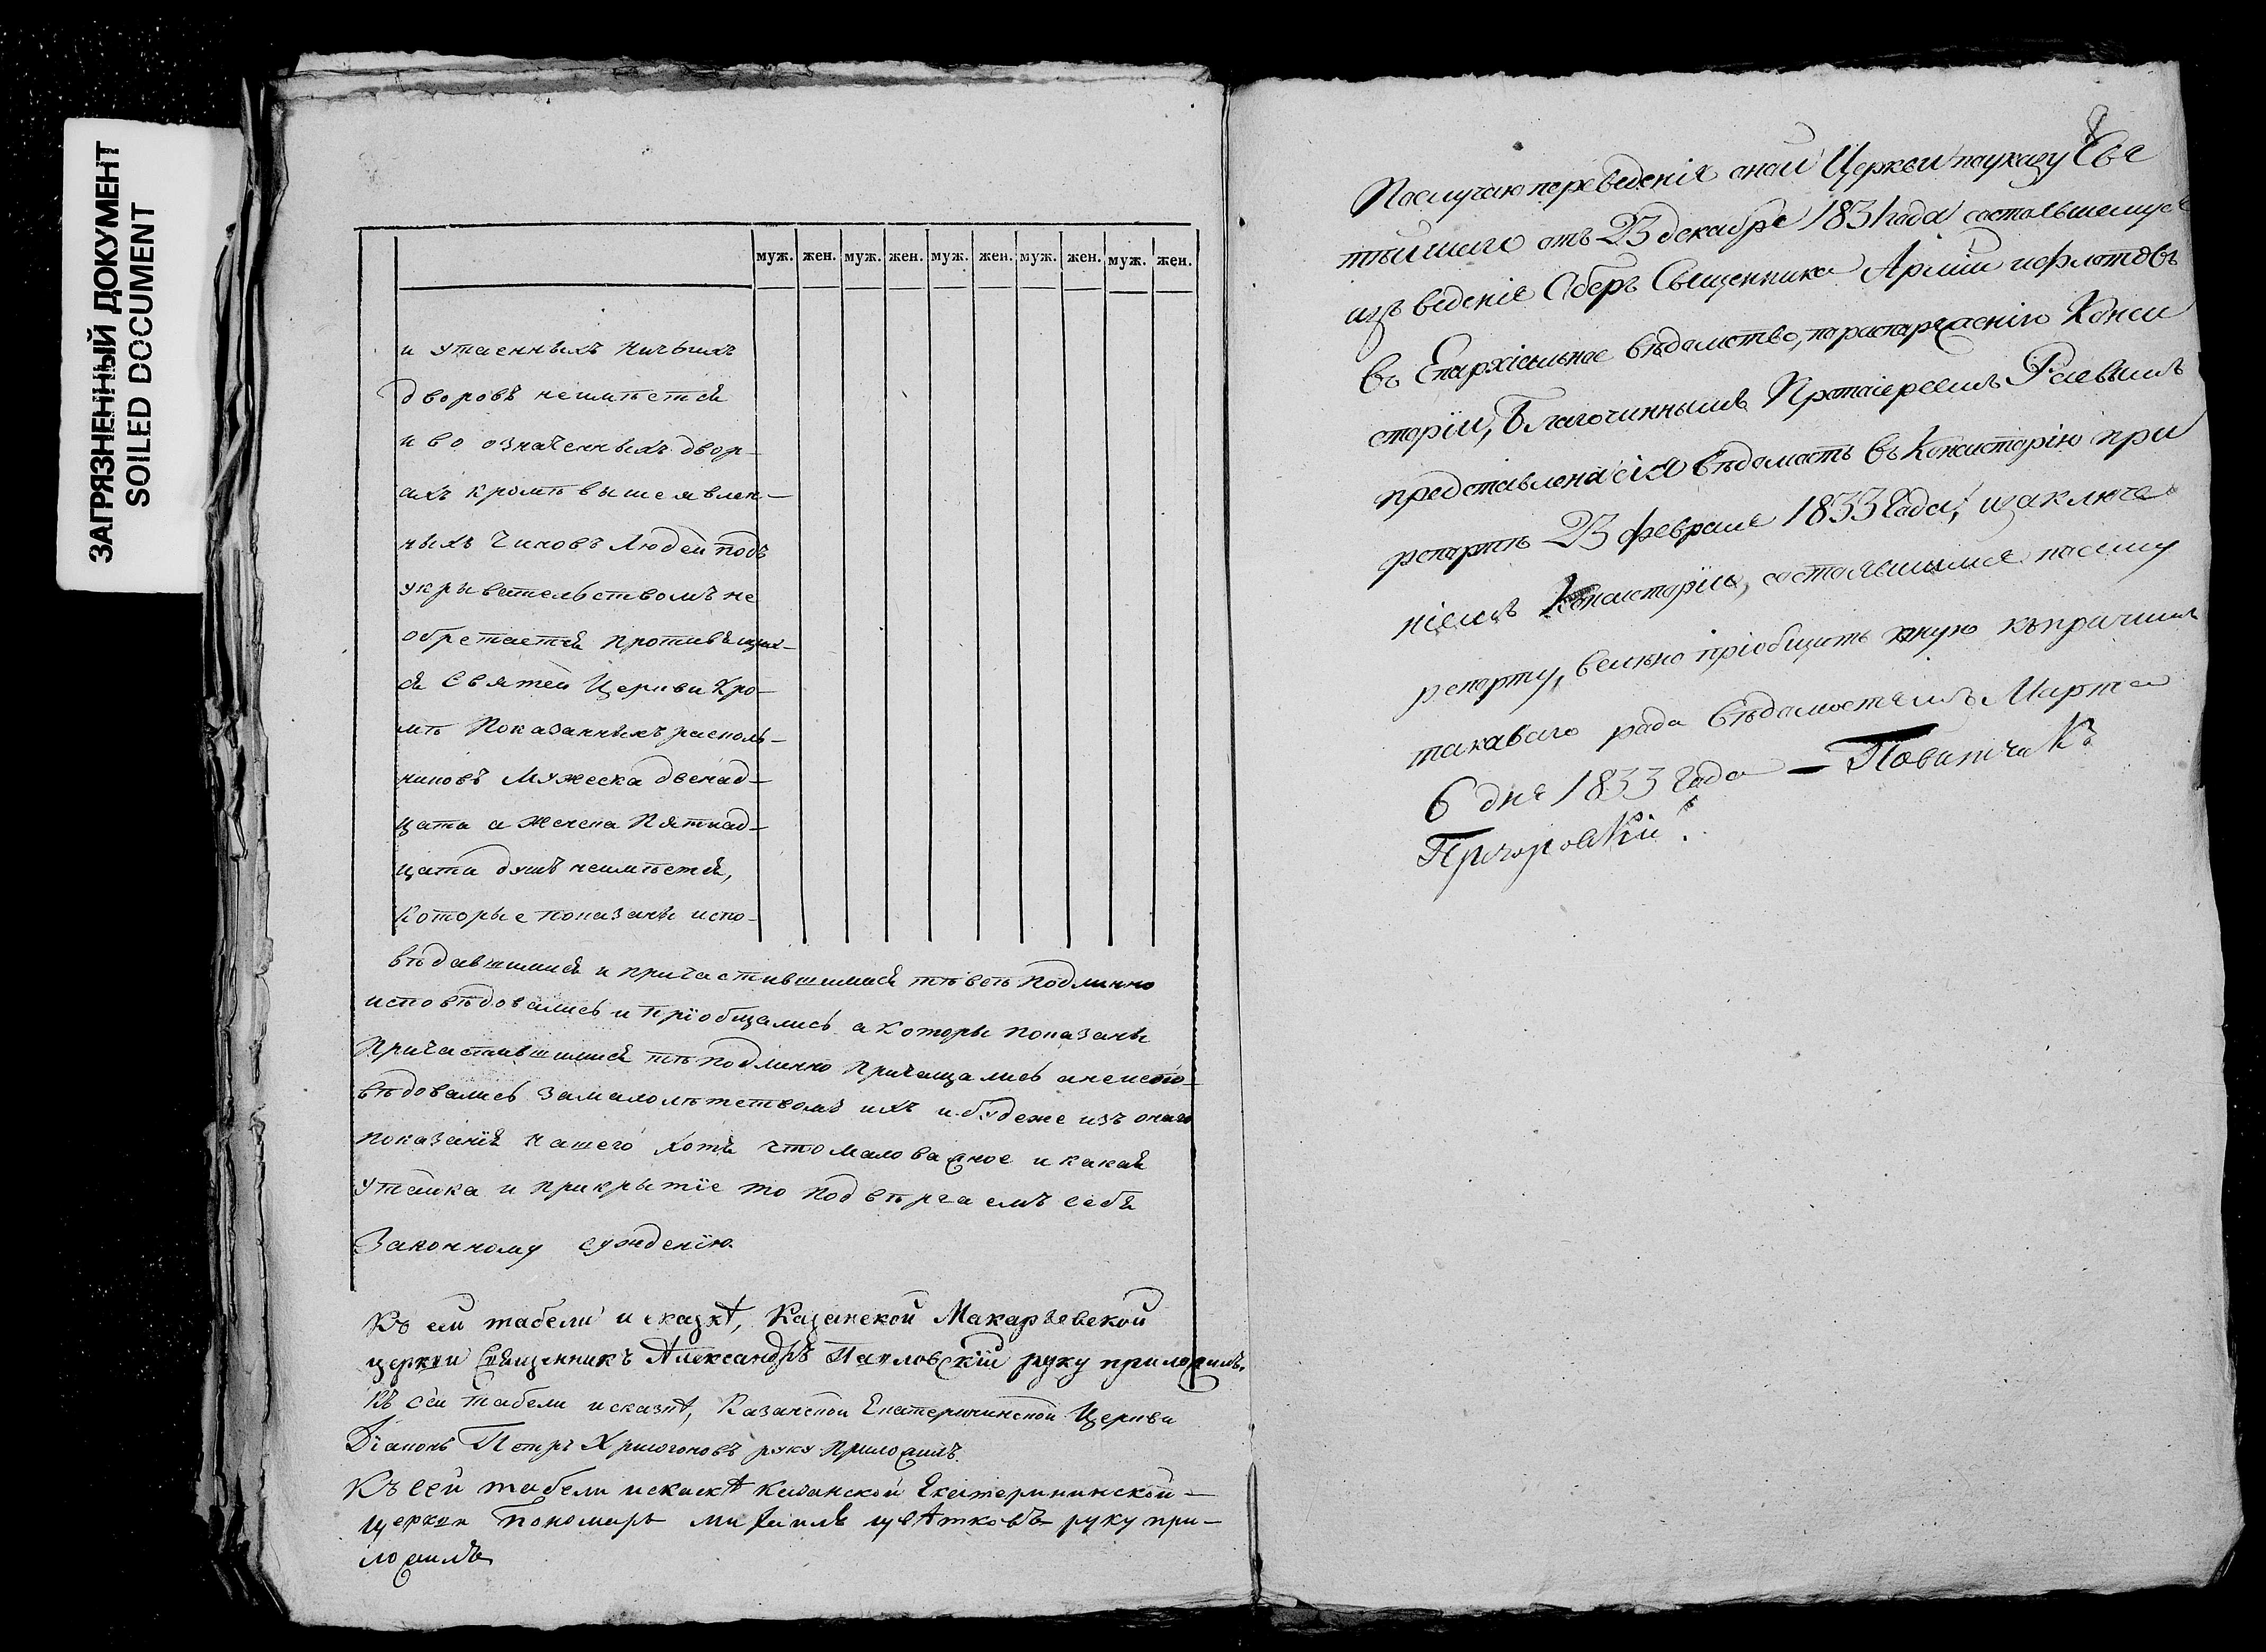 ЗАГРЯЗНЕННЫЙ ДОКУМЕНТ
SOILED DOCUMENT
муж. жен. муж. жен. муж. жен. муж. жен. муж. жен.
и утаенныхъ ничьихъ
дворовъ неимѣется
и во означенныхъ двор-
ахъ кромѣ вышеявлен-
ныхъ чиновъ людей подъ
укрывательствомъ не
обретается противящих-
ся Святей Церкви кро-
мѣ показанныхъ расколь-
никовъ мужеска двенад-
цата а женска пятнад-
цати душъ неимѣется,
которые показаны испо-
вѣдавшимися и причастившимися тѣ всѣ подлинно
исповѣдовались и пріобщались а которы показаны
причастившимися тѣ подлинно причащались а неиспо-
вѣдовались замалолѣтетвомъ ихъ и будеже изъ онаго
показанія нашего хотя что маловажное и какая
утайка и прикрытіе то подвѣргаемъ себя
законному сужденію.
Къ сей табели и сказкѣ, Казанской Макарьевской
церкви Священникъ Александръ Павловскій руку приложилъ.
Къ сей табели и сказкѣ, Казанской Екатерининской Церкви
Діаконъ Петръ руку приложилъ.
Къ сей табели и скаскѣ казанской Екатерининской
церкви Пономарь михаилъ цвѣтковъ руку при-
ложилъ
8
Послучаю переведенія оной Церкви поуказу Свя
тѣйшаго отъ 23 декабря 1831 года состоявшемуся
изъ веденія Оберъ Священника Арміи и флотовъ
въ Епархіальное вѣдомство, по распоряженію Конси
сторіи, Благочиннымъ Протоіереемъ Раевымъ
представлена сія вѣдомость въ Консисторію при
репортѣ 23 февраля 1833 года, и заключе
ніемъ Консисторіи, состоявшимся посему
репорту, велѣно пріобщить оную къ прочимъ
таковаго рода вѣдомостямъ Марта
6 дня 1833 года — Повытчикъ